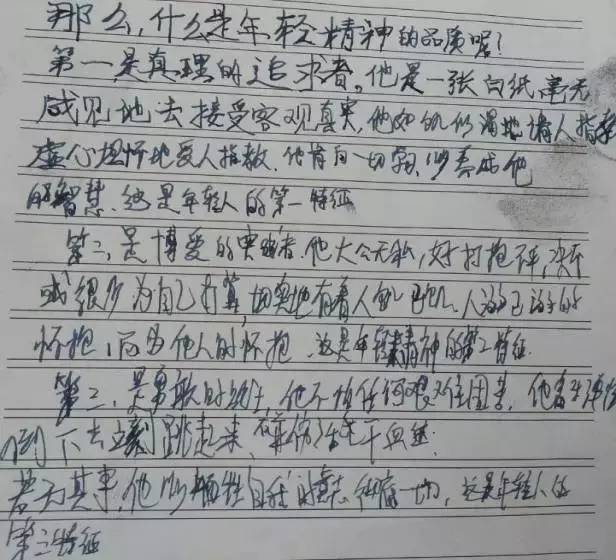 那么,什么是年轻精神的品质呢?
第一是真理的追求者。他是一张白纸,毫无
成见地去接受客观真实,他如饥似渴地请人指教
虚心坦怀地受人指教,他肯向一切学,以养成他
的智慧。这是年轻人的第一特征
第二,是博爱的实践者。他大公无私,好打抱不平,决不
或很少为自己打算,切实地有着人饥己饥、人溺己溺的
怀抱,而为他人的怀抱。这是年轻精神的第二特征。
第三,是勇敢的战士,他不怕任何艰难困苦,他
倒下去立刻跳起来,
若无其事,他以牺牲自我的意志 一切,这是年轻人的
第三特征